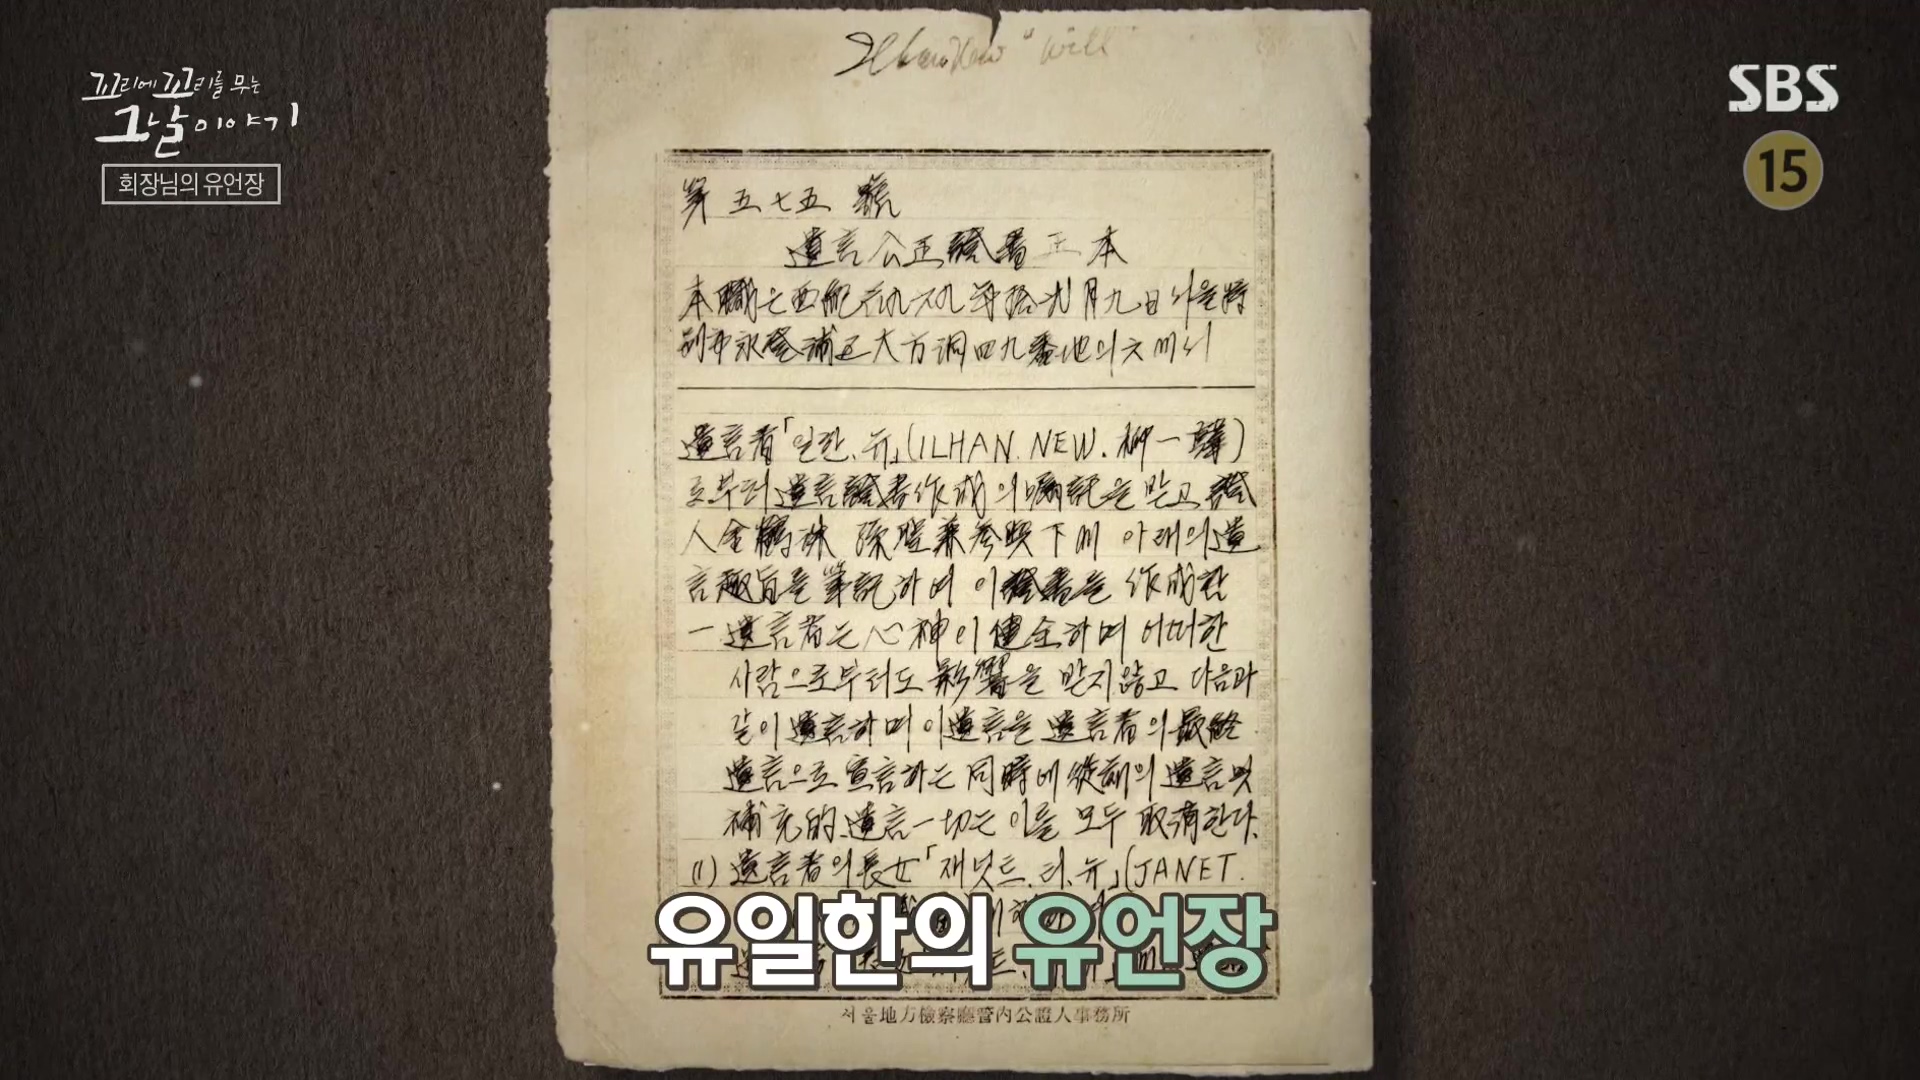 꼬리에 꼬리를 무는
그날 이야기
회장님의 유언장
SBS
15
Ilhan New "Will"
第 五七五 號
遺言公正證書正本
本職은 西紀 壱九六九年 拾弐月 九日 서울特
別市 永登浦區 大方洞 四九番地의 六에서
遺言者「일한.뉴」(ILHAN. NEW. 柳一韓)
로부터 遺言證書作成의 嘱託을 받고 證
人 金鶴洙 孫㻇兼 参與下에 아래의 遺
言趣旨를 筆記하여 이 證書를 作成함
一 遺言者는 心神이 健全하며 어떠한
사람으로부터도 影響을 받지않고 다음과
같이 遺言하며 이遺言을 遺言者의 最終
遺言으로 宣言하는 同時에 從前의 遺言 및
補充的 遺言一切는 이를 모두 取消한다.
(1) 遺言者의 長女「재넛트.티.뉴」(JANET.
유일한의 유언장
서울地方檢察廳管內公證人事務所